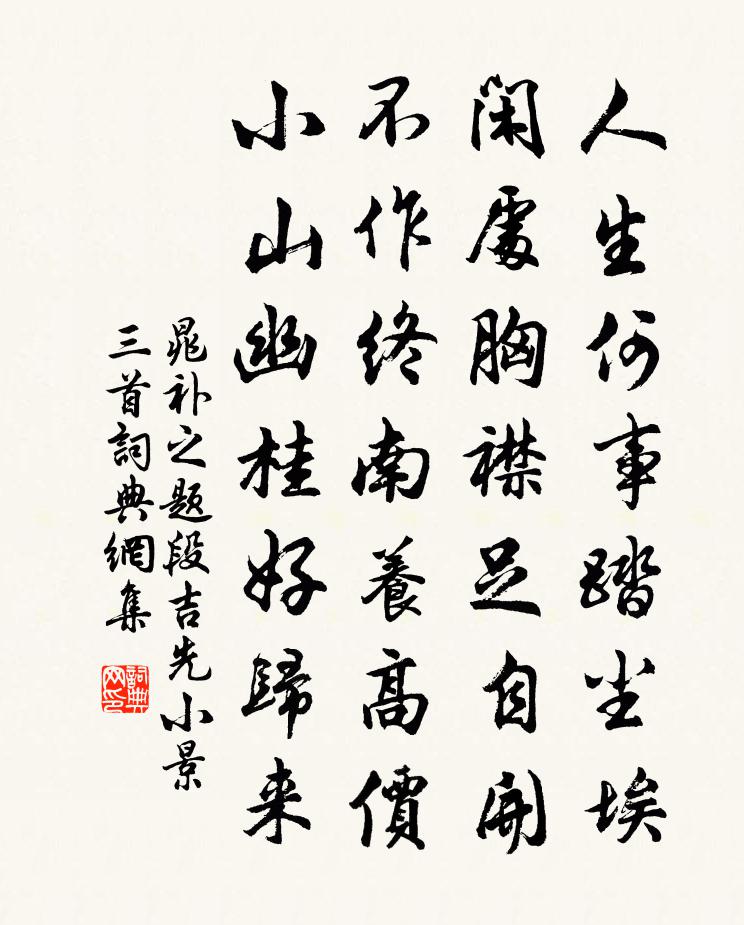 人生何事踏尘埃
閑處胸襟足自開
不作終南養高價
小山幽桂好歸来
晁补之题段吉先小景
三首詞典網集
詞典网印